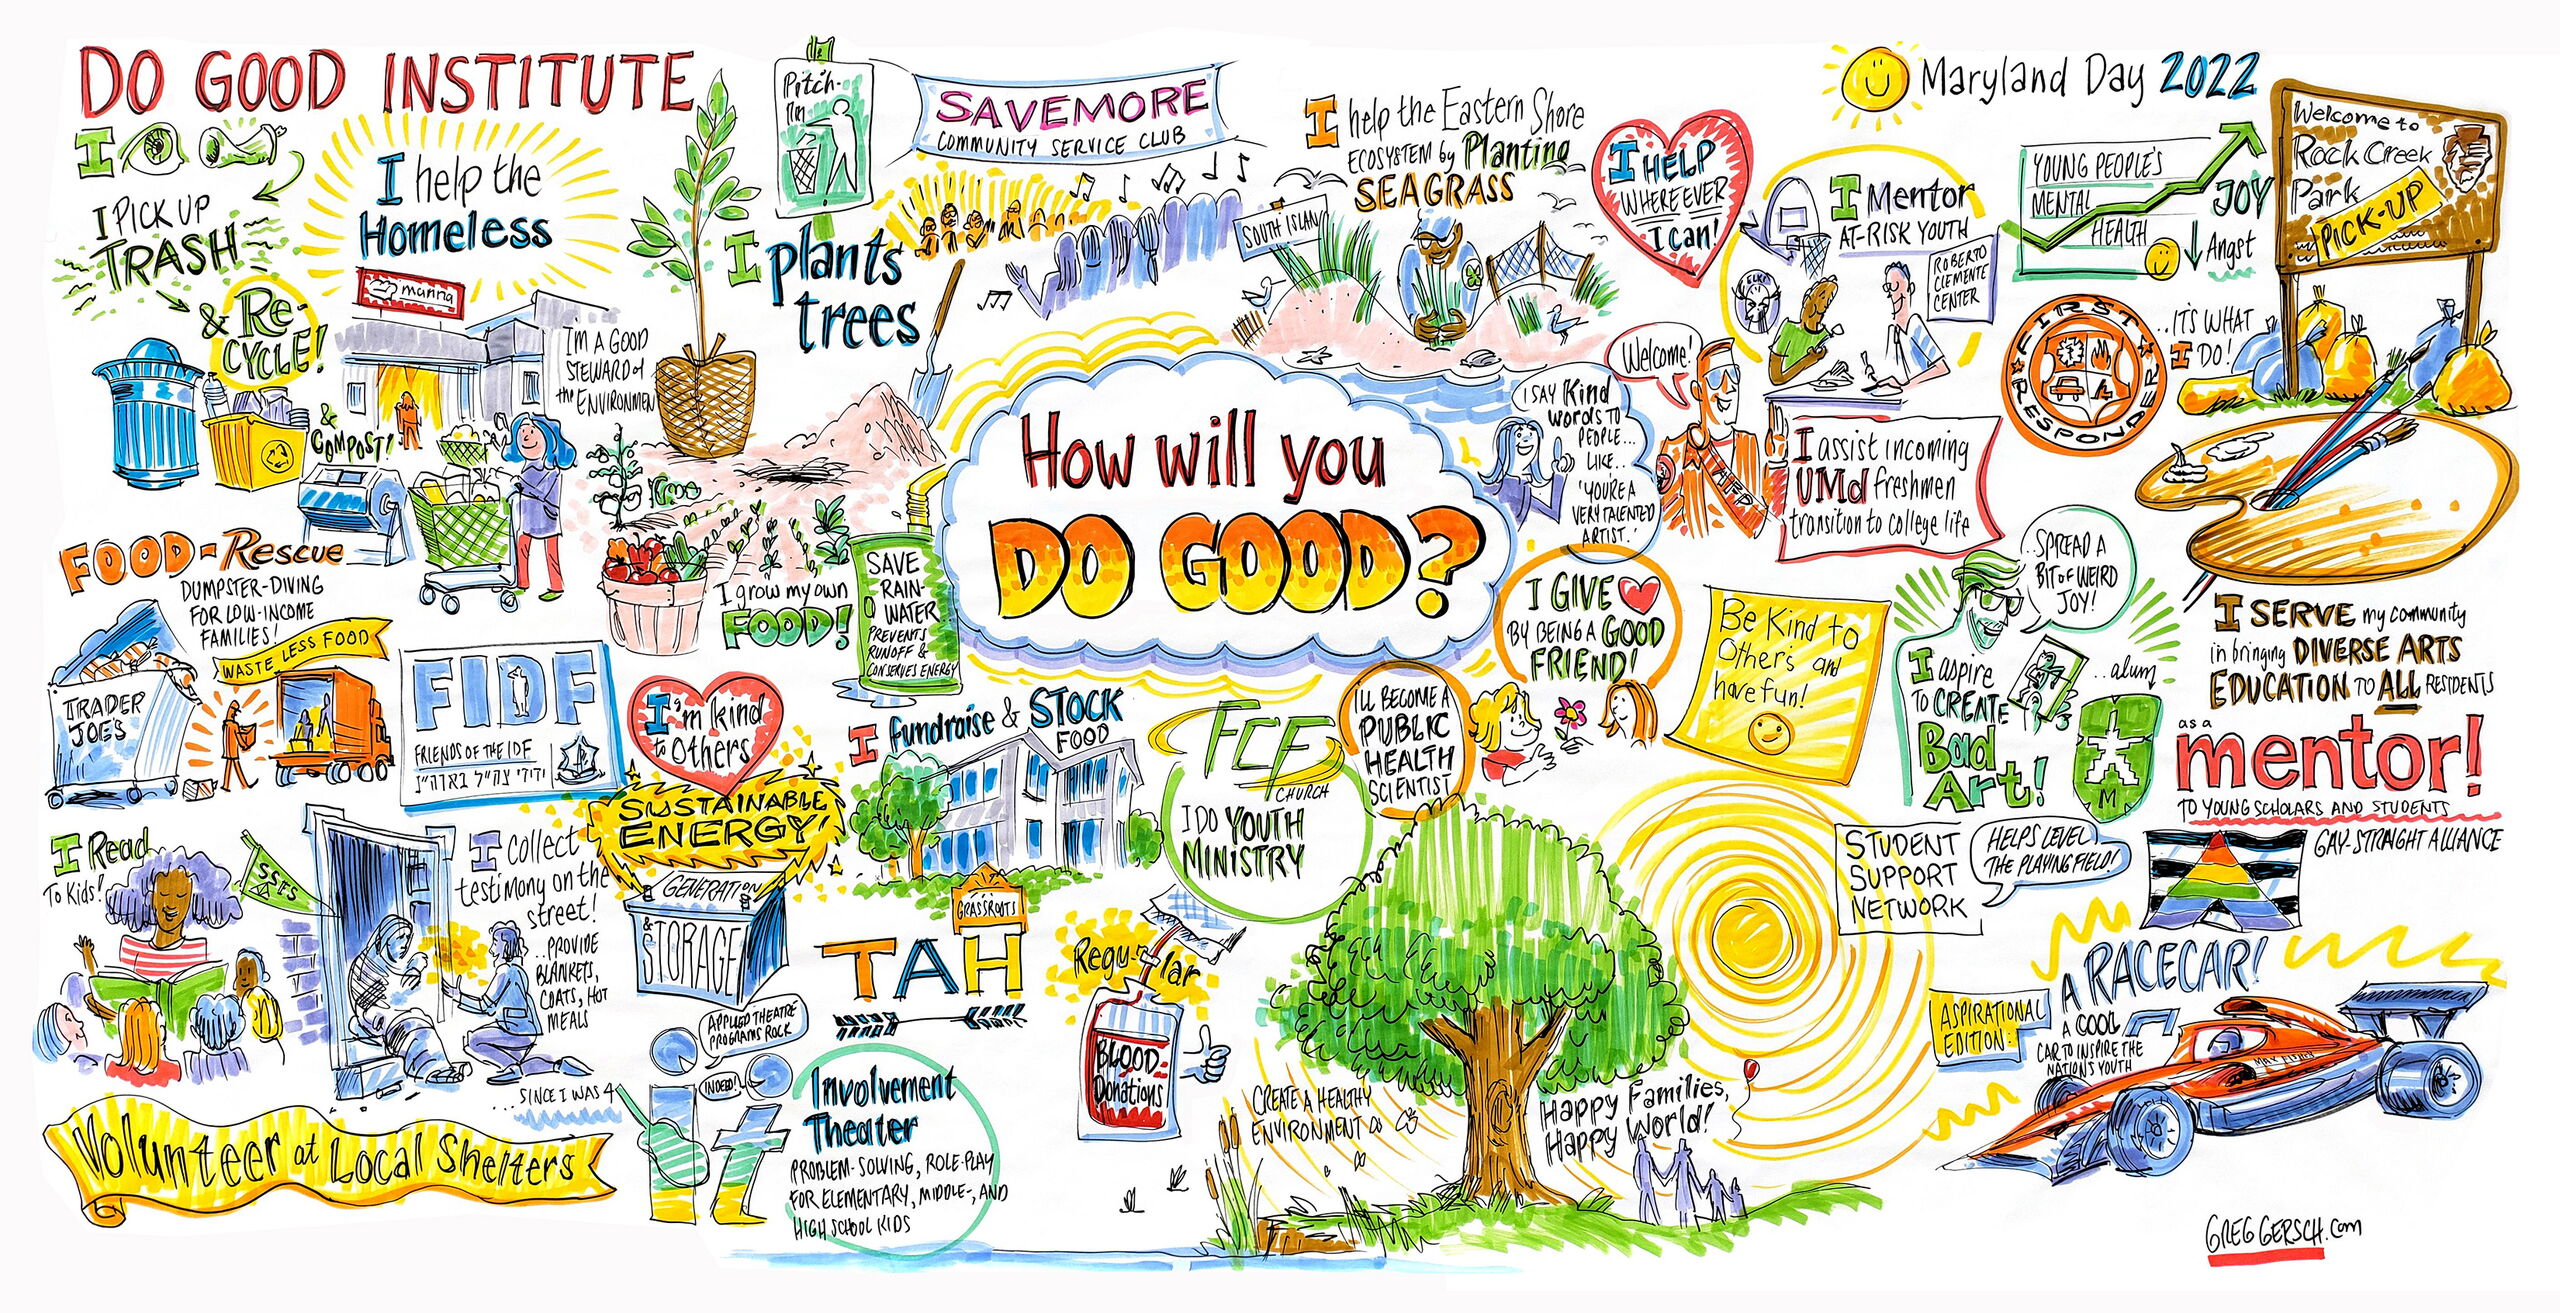 DO GOOD INSTITUTE
I
I PICK UP
TRASH
& RE-
CYCLE!
& COMPOST!
I help the
Homeless
manna
I'M A GOOD
STEWARD of
the ENVIRONMEN
Pitch-
In
I plants
trees
SAVEMORE
COMMUNITY SERVICE CLUB
I help the Eastern Shore
ECOSYSTEM by Planting
SEAGRASS
SOUTH ISLAND
I HELP
WHEREEVER
I can!
Maryland Day 2022
I Mentor
AT-RISK YOUTH
ROBERTO
CLEMENTE
CENTER
YOUNG PEOPLE'S
MENTAL
HEALTH
JOY
Angst
Welcome to
Rock Creek
Park
PICK-UP
FIRST
RESPONDER
..IT'S WHAT
I DO!
Welcome!
I SAY Kind
words to
PEOPLE...
LIKE..
'YOU'RE A
VERY TALENTED
ARTIST.'
I assist incoming
UMd freshmen
transition to college life
How will you
DO GOOD?
FOOD-Rescue
DUMPSTER-DIVING
FOR LOW-INCOME
FAMILIES!
WASTE LESS FOOD
TRADER
JOE'S
FIDF
FRIENDS OF THE IDF
ידידי צה"ל בארה"ב
I grow my own
FOOD!
SAVE
RAIN-
WATER
PREVENTS
RUNOFF &
CONSERVES ENERGY
I'm kind
to Others
I fundraise & STOCK
FOOD
FCF
CHURCH
I DO YOUTH
MINISTRY
I'LL BECOME A
PUBLIC
HEALTH
SCIENTIST
I GIVE
BY BEING A GOOD
FRIEND!
Be Kind to
Others and
have fun!
..SPREAD A
BIT of WEIRD
JOY!
I aspire
TO CREATE
Bad
Art!
..alum
M
I SERVE my community
in bringing DIVERSE ARTS
EDUCATION TO ALL RESIDENTS
as a
mentor!
TO YOUNG SCHOLARS AND STUDENTS
GAY-STRAIGHT ALLIANCE
STUDENT
SUPPORT
NETWORK
HELPS LEVEL
THE PLAYING FIELD!
I Read
To Kids!
I collect
testimony on the
street!
..PROVIDE
BLANKETS,
COATS, HOT
MEALS
...SINCE I WAS 4
Volunteer at Local Shelters
SUSTAINABLE
ENERGY!
GENERATION
& STORAGE
GRASSROOTS
TAH
APPLIED THEATRE
PROGRAMS ROCK
INDEED!
it
Involvement
Theater
PROBLEM-SOLVING, ROLE-PLAY
FOR ELEMENTARY, MIDDLE-, AND
HIGH SCHOOL KIDS
Regular
BLOOD
Donations
CREATE A HEALTHY
ENVIRONMENT
Happy Families,
Happy World!
ASPIRATIONAL
EDITION:
A RACECAR!
A COOL
CAR TO INSPIRE THE
NATION'S YOUTH
GREGGERSCH.com